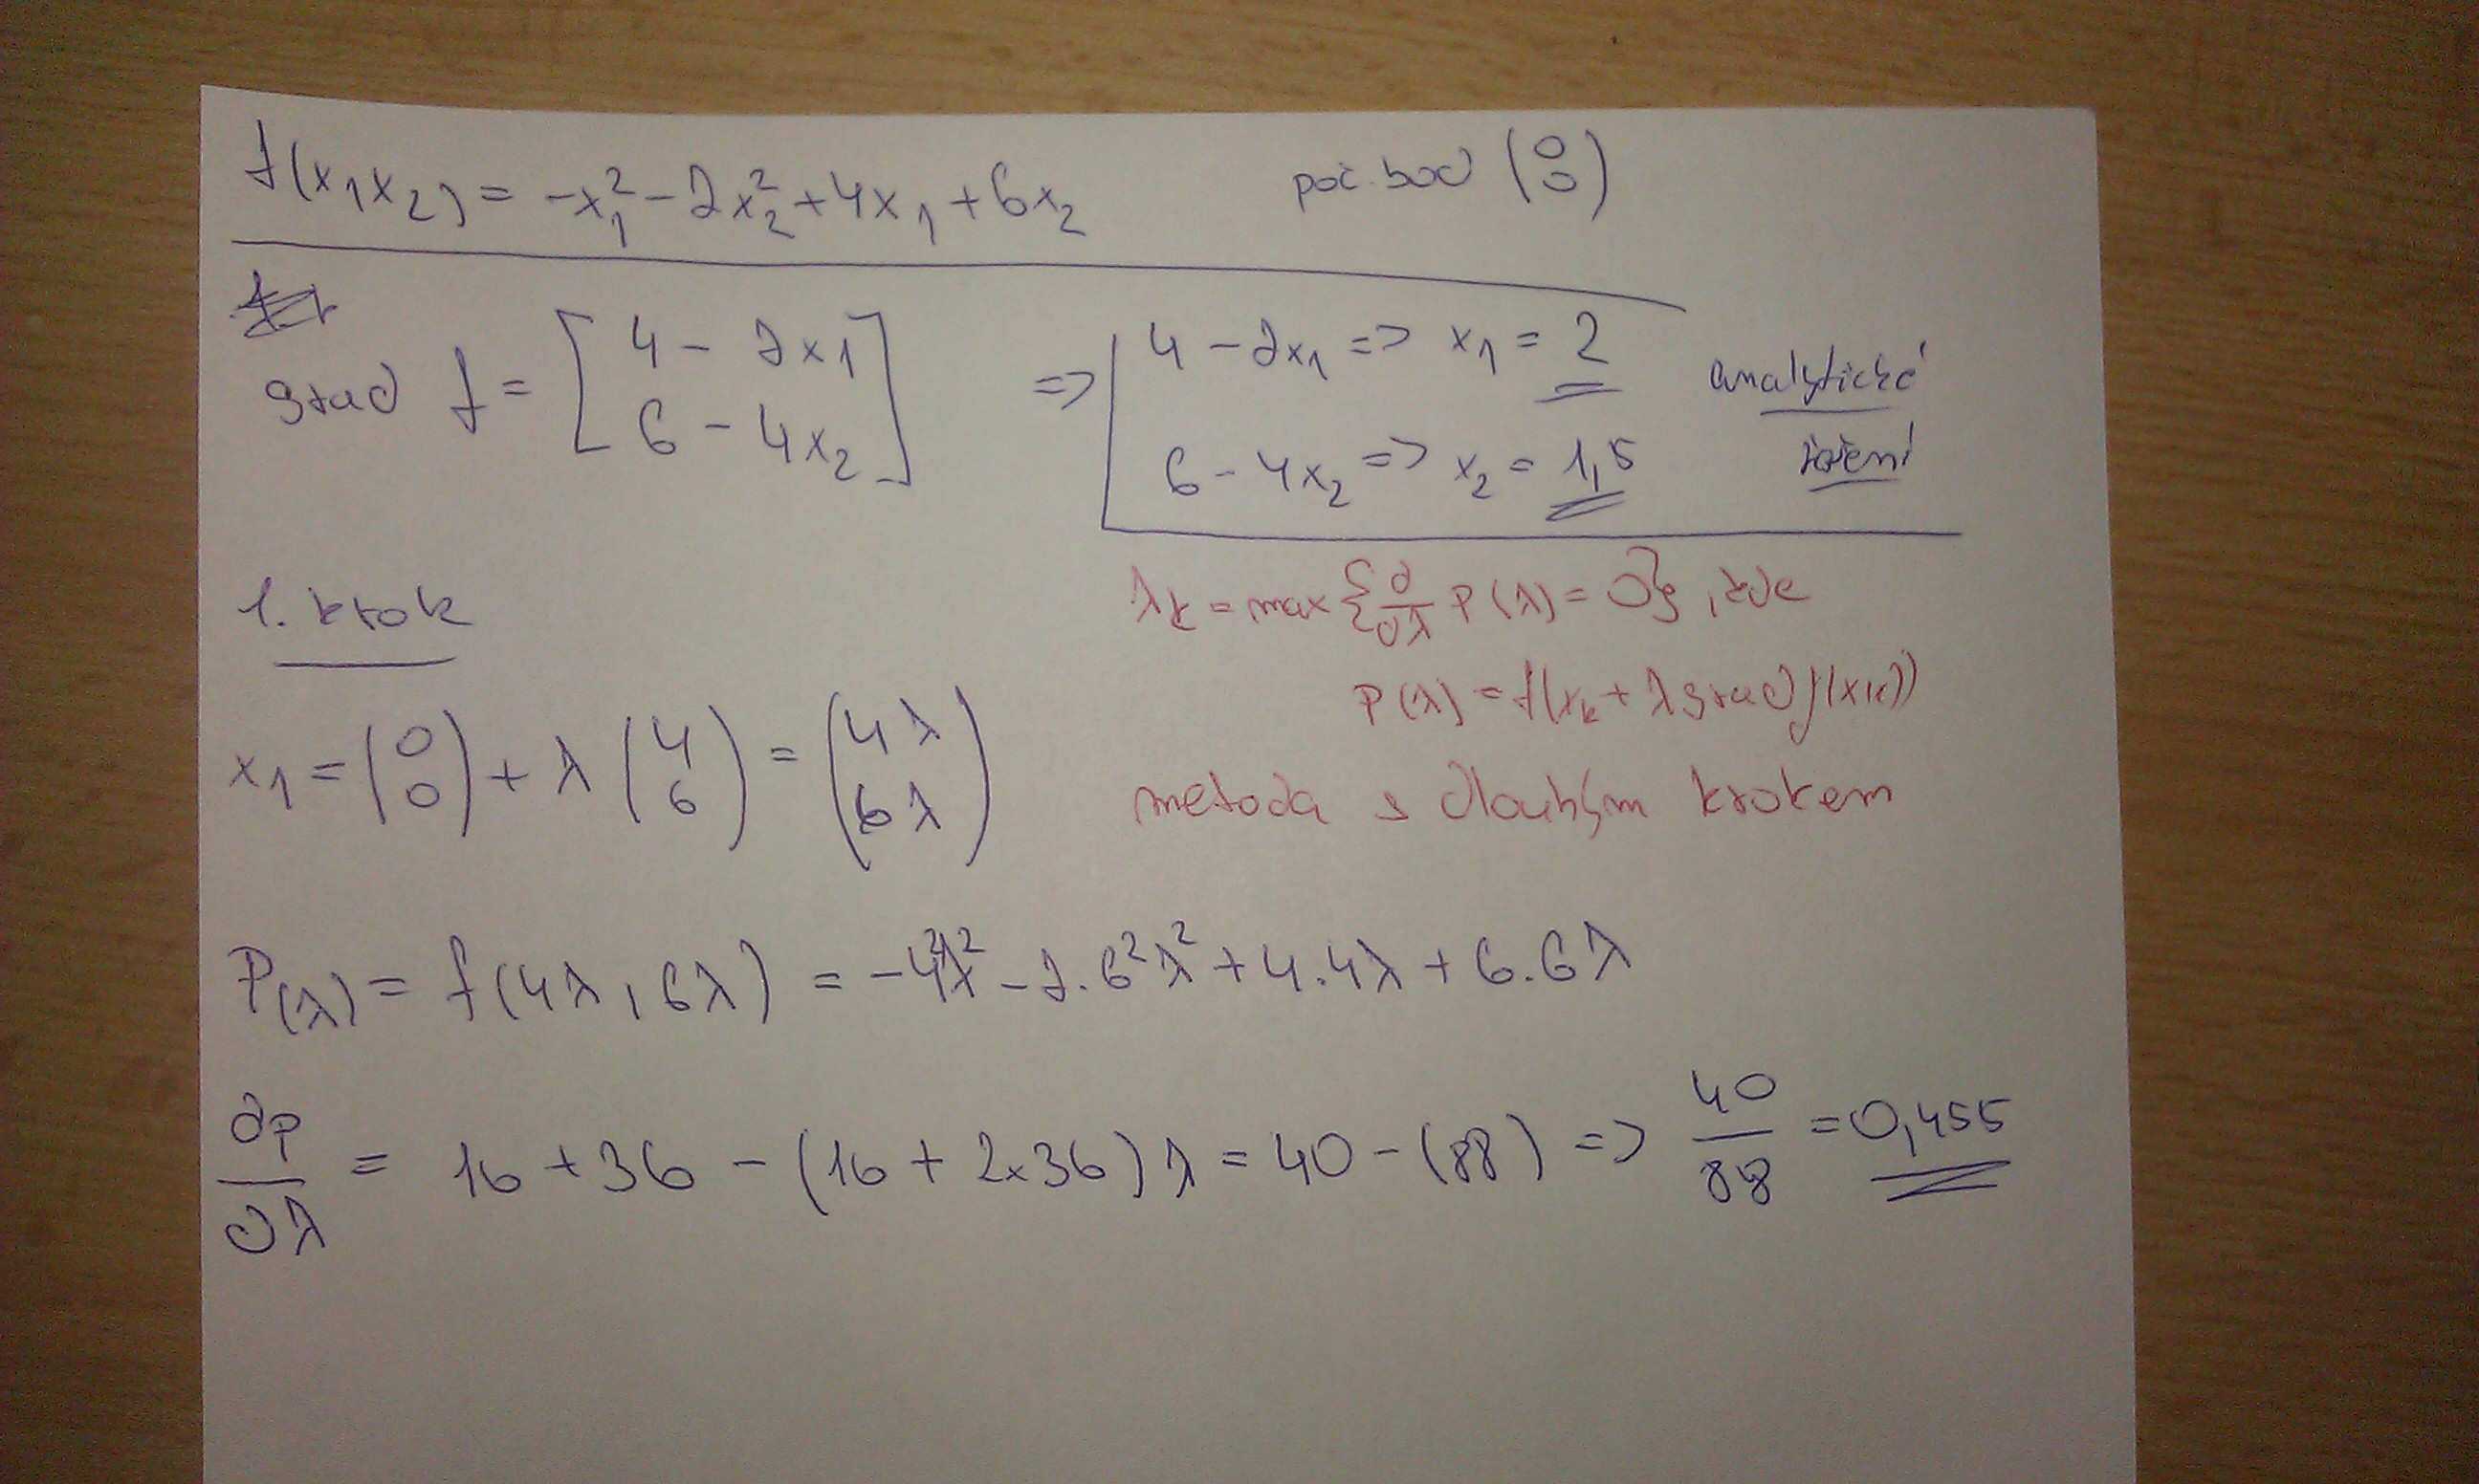 f(x₁x₂) = -x₁² - 2x₂² + 4x₁ + 6x₂
poč. bod (0 0)
grad f = [4 - 2x₁
6 - 4x₂]
=> 4 - 2x₁ => x₁ = 2
6 - 4x₂ => x₂ = 1,5
analytické
řešení
1. krok
λk = max {∂/∂λ P(λ) = 0}, kde
P(λ) = f(xk + λ grad f(xk))
metoda s dlouhým krokem
x₁ = (0 0) + λ (4 6) = (4λ 6λ)
P(λ) = f(4λ, 6λ) = -4²λ² - 2.6²λ² + 4.4λ + 6.6λ
∂P/∂λ = 16 + 36 - (16 + 2x36)λ = 40 - (88) => 40/88 = 0,455